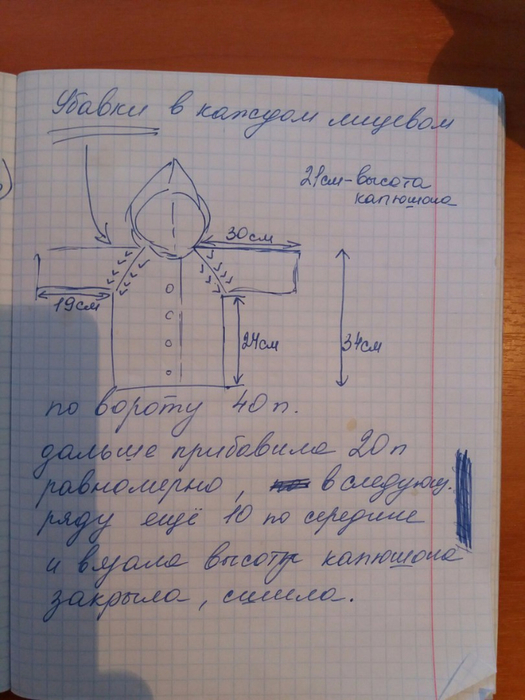 Убавки в каждом лицевом
21см-высота
капюшона
30см
19см
24см
34см
по вороту 40п.
дальше прибавила 20п
равномерно, в следующ.
ряду ещё 10 по середине
и вязала высоту капюшона
закрыла, сшила.